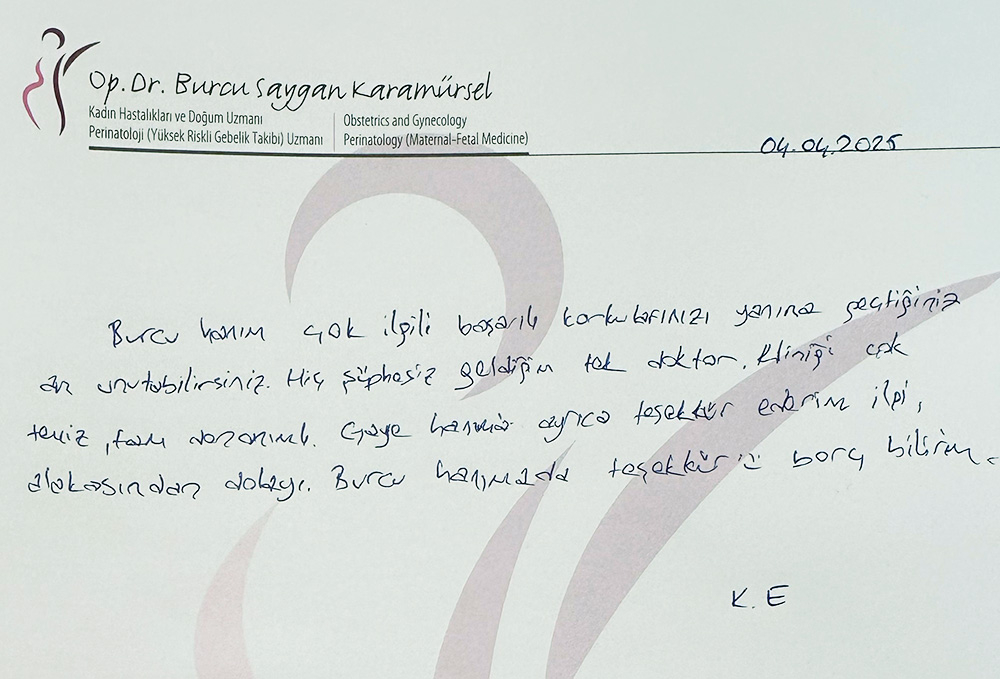 Op. Dr. Burcu Saygan Karamürsel
Kadın Hastalıkları ve Doğum Uzmanı
Perinatoloji (Yüksek Riskli Gebelik Takibi) Uzmanı
Obstetrics and Gynecology
Perinatology (Maternal-Fetal Medicine)
04.04.2025
Burcu hanım çok ilgili başarılı korkularınızı yanına geçtiğiniz
an unutabilirsiniz. Hiç şüphesiz geldiğim tek doktor. Kliniği çok
temiz, tam donanımlı. Gaye hanıma ayrıca teşekkür ederim ilgi,
alakasından dolayı. Burcu hanımada teşekkürü borç bilirim.
K. E